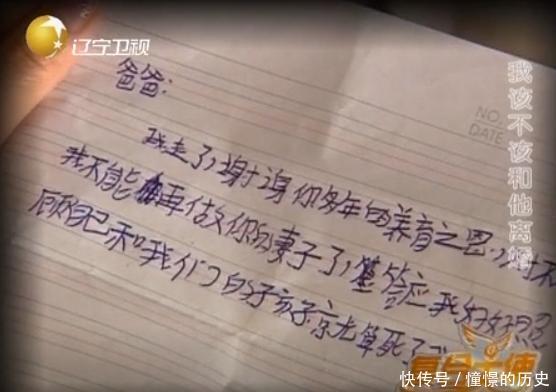 辽宁卫视
爸爸:
NO.
DATE
我走了,谢谢你多年的养育之恩,对不
我不能再做你的妻子了,答应我好好照
顾自己和我们的孩子,就算死了
我该不该和他离婚
快传号/憧憬的历史